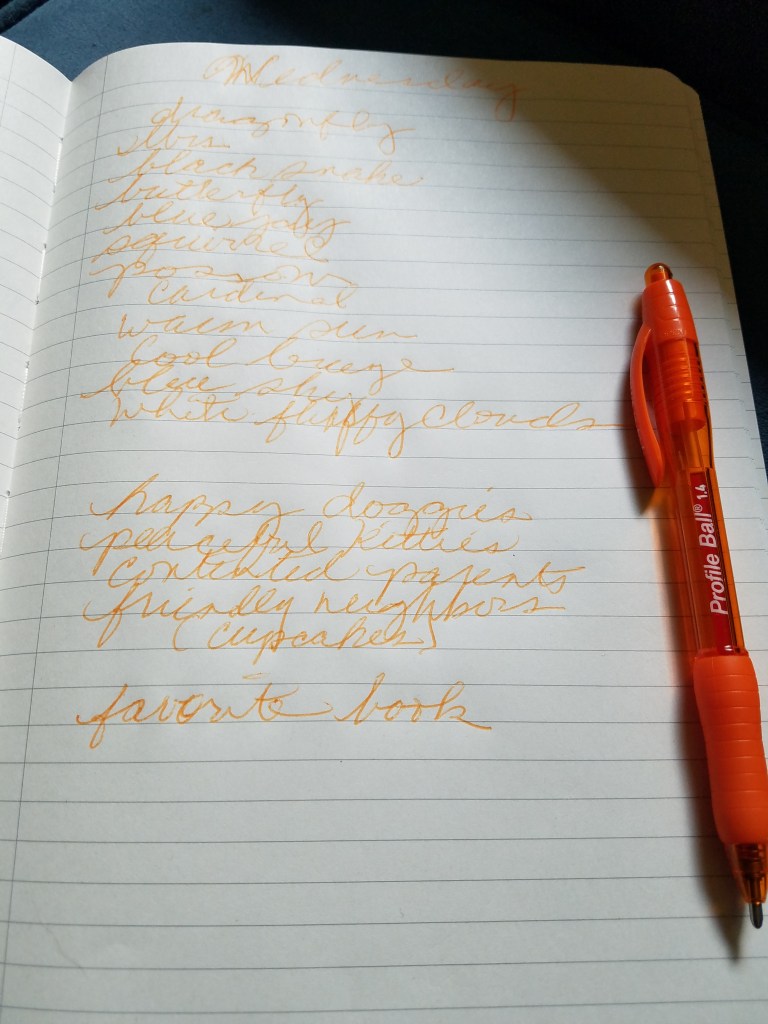 Wednesday
dragonfly
ibis
black snake
butterfly
blue jay
squirrel
possom
cardinal
warm sun
cool breeze
blue sky
white fluffy clouds
happy doggies
peaceful kitties
contented parents
friendly neighbors
(cupcakes)
favorite book
Profile Ball® 1.4